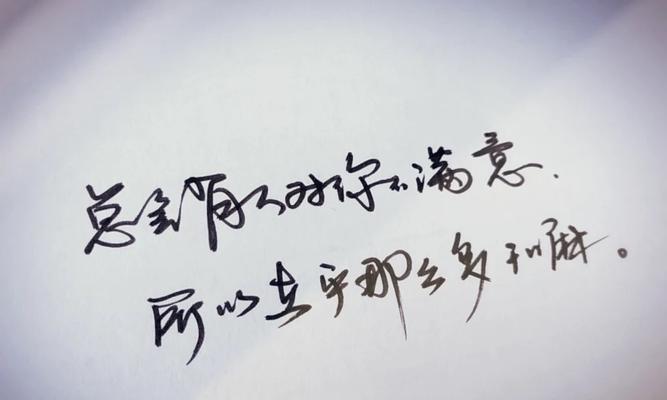 总会有人对你不满意、
所以在乎那么多干嘛。